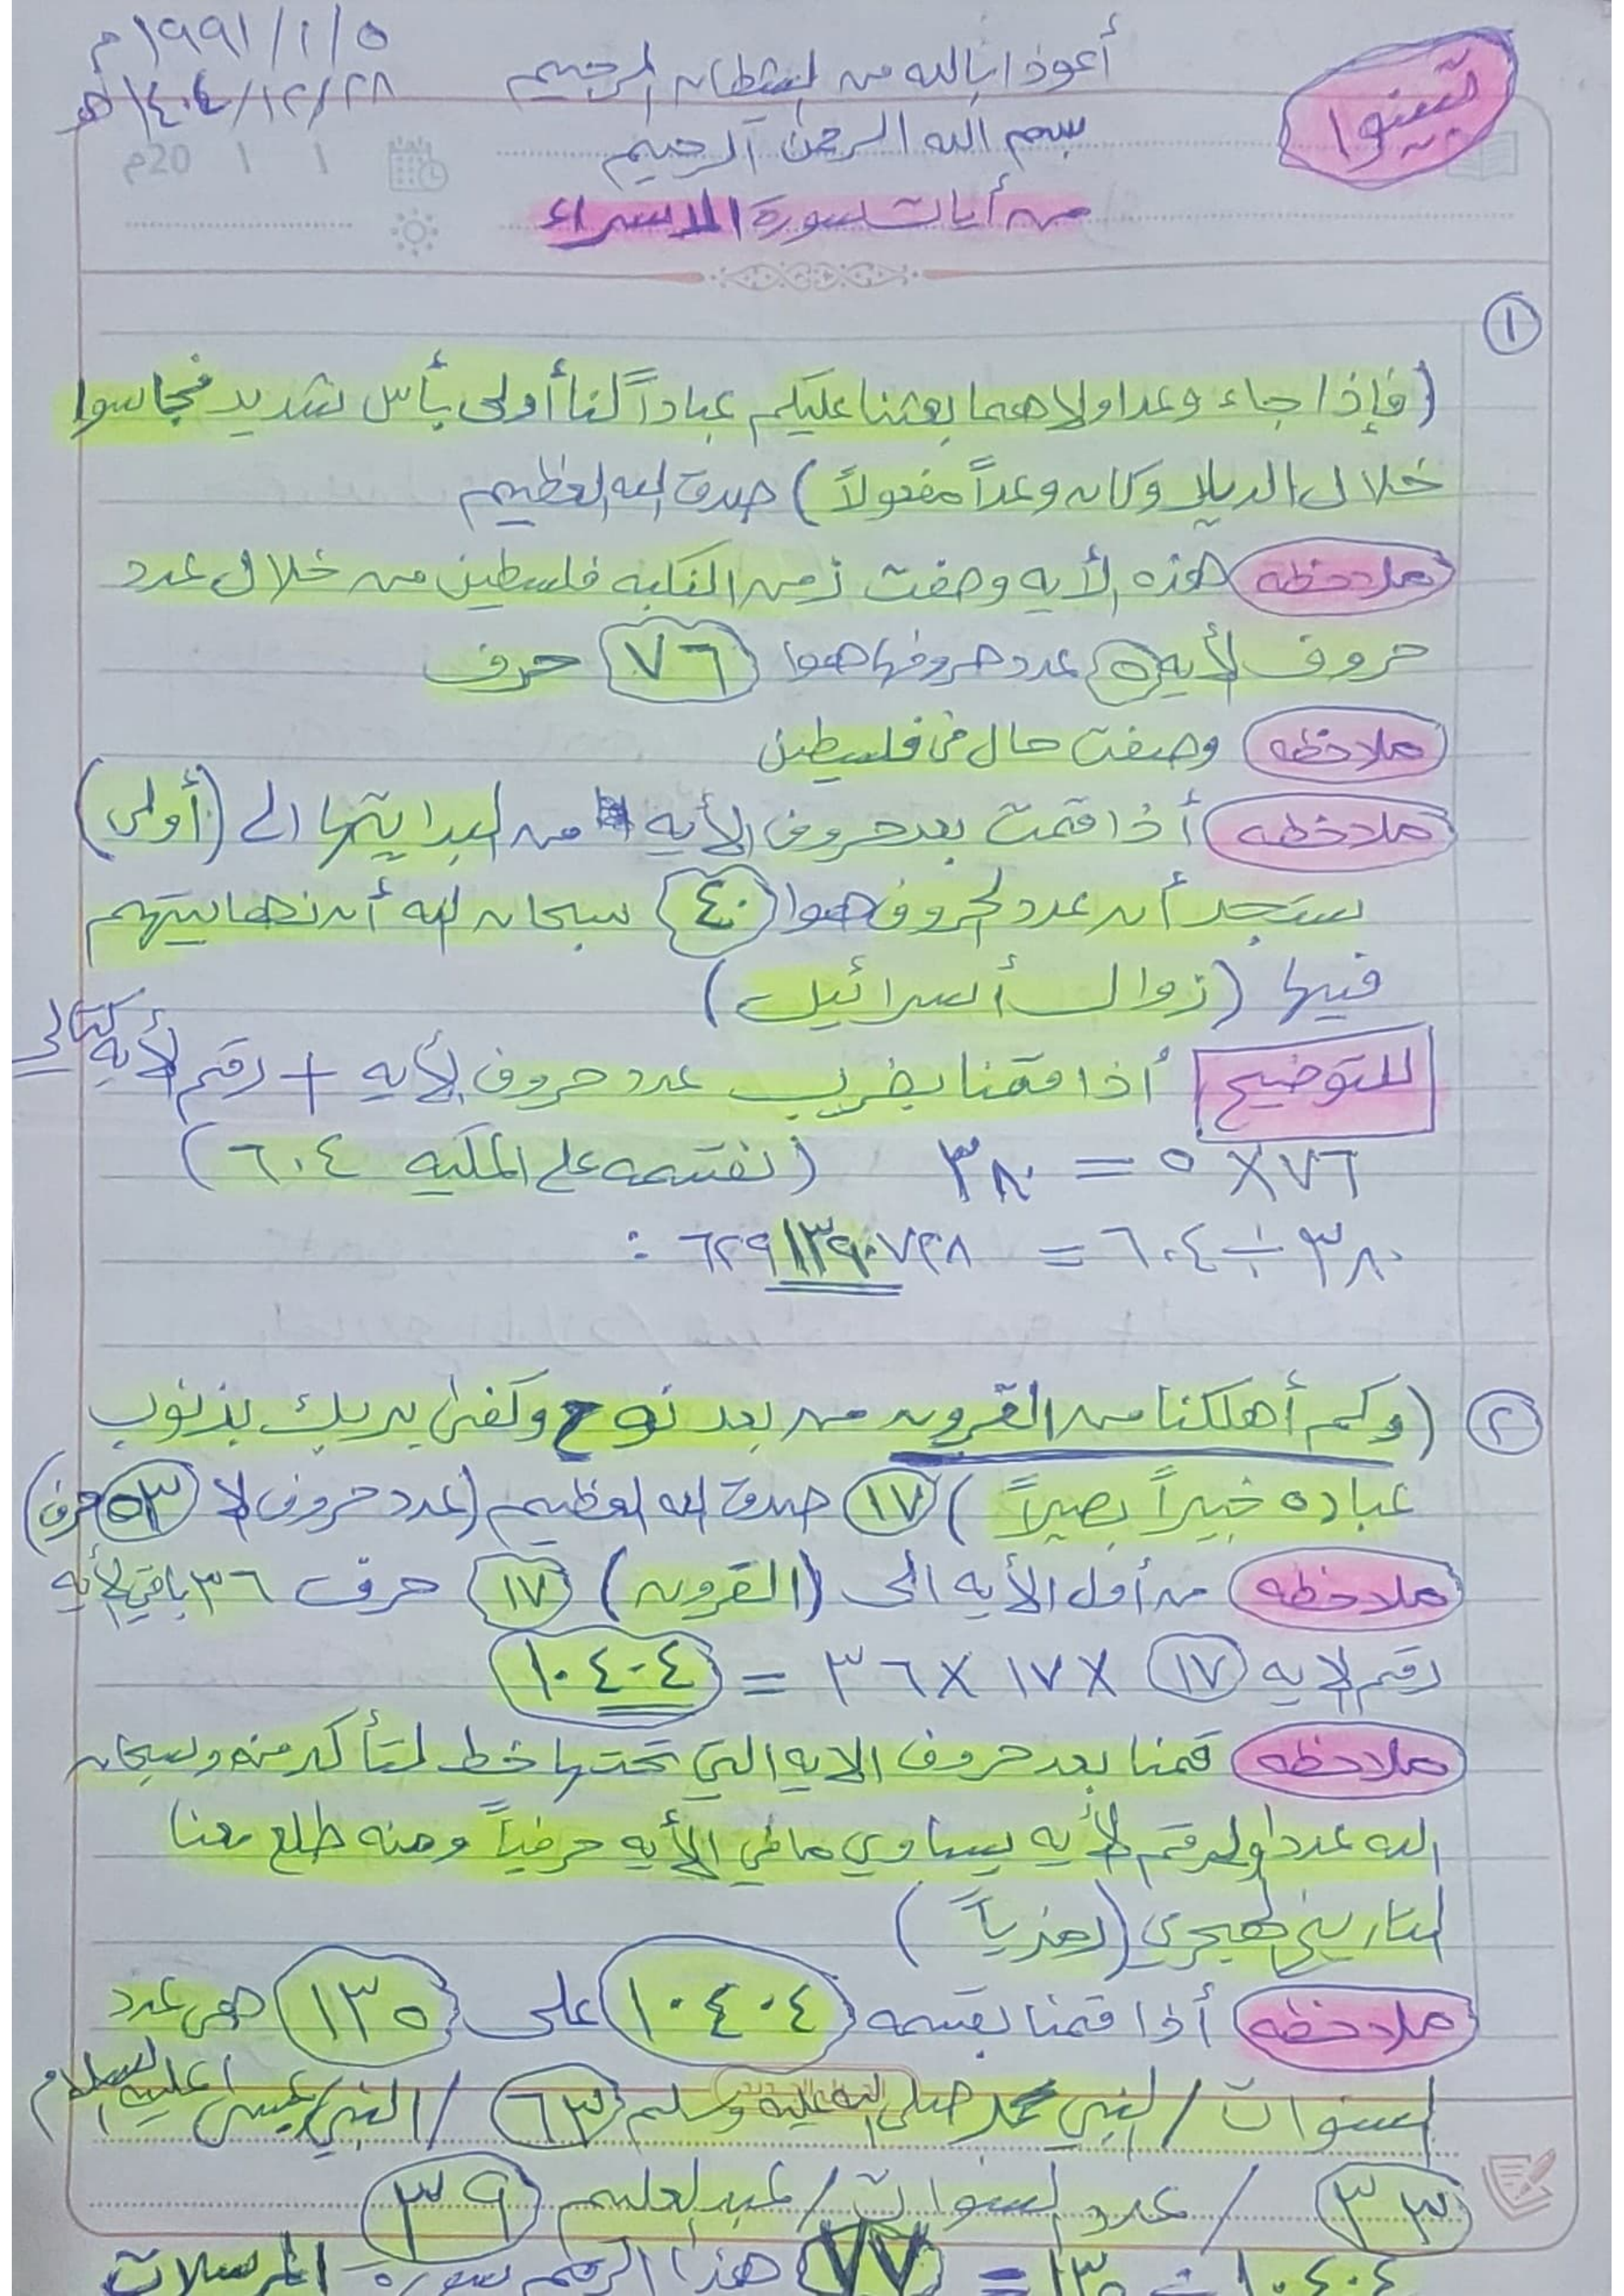 ٥/١/١٩٩١م
٢٨/١٢/١٤٠٤هـ
أعوذ بالله من الشيطان الرجيم
تبينوا
بسم الله الرحمن الرحيم
20م / /
من أيات سورة الاسراء
١
(فإذا جاء وعد اولاهما بعثنا عليكم عباداً لنا أولى بأس شديد فجاسوا
خلال الديار وكان وعداً مفعولاً) صدق الله العظيم
ملاحظه هذه الأيه وصفت زمن النكبه فلسطين من خلال عدد
حروف الأيه ٥ عدد حروفها هوا ٧٦ حرف
ملاحظه وصفت حال في فلسطين
ملاحظه أذا قمت بعد حروف الأيه من البدايتها الى (أولى)
ستجد أن عدد الحروف هوا ٤٠ سبحان الله أن نهايتهم
فيها (زوال أسرائيل)
للتوضيح أذا قمنا بضرب عدد حروف الأيه + رقم الأيه كتالي
٧٦ × ٥ = ٣٨٠ (نقسمه على الملكيه ٦٠٤)
٣٨٠ ÷ ٦٠٤ = ٦٢٩١٣٩٠٧٢٨ :
٢ (وكم أهلكنا من القرون من بعد نوح وكفى بربك بذنوب
عباده خبيراً بصيراً) ١٧ صدق الله العظيم (عدد حروف الا ٥٣ حرف)
ملاحظه من أول الأيه الى (القرون) ١٧ حرف ٣٦ باقي الأيه
رقم الايه ١٧ × ١٧ × ٣٦ = ١٠٤٠٤
ملاحظه قمنا بعد حروف الايه التي تحتها خط لتأكد منه وسبحان
الله عدد اولد رقم الأيه يساوي مافي الأيه حرفياً ومنه طلع معنا
التاريخ الهجري (رمزياً)
ملاحظه أذا قمنا بقسمه ١٠٤٠٤ على ١٣٥ هي عدد
السنوات / النبي محمد صلى الله عليه وسلم ٦٣ / النبي عيسى عليه السلام
٣٣ / عدد السنوات / عبدالعليم ٣٩
١٠٤٠٤ ÷ ١٣٥ = ٧٧ هذا الرقم سورة المرسلات